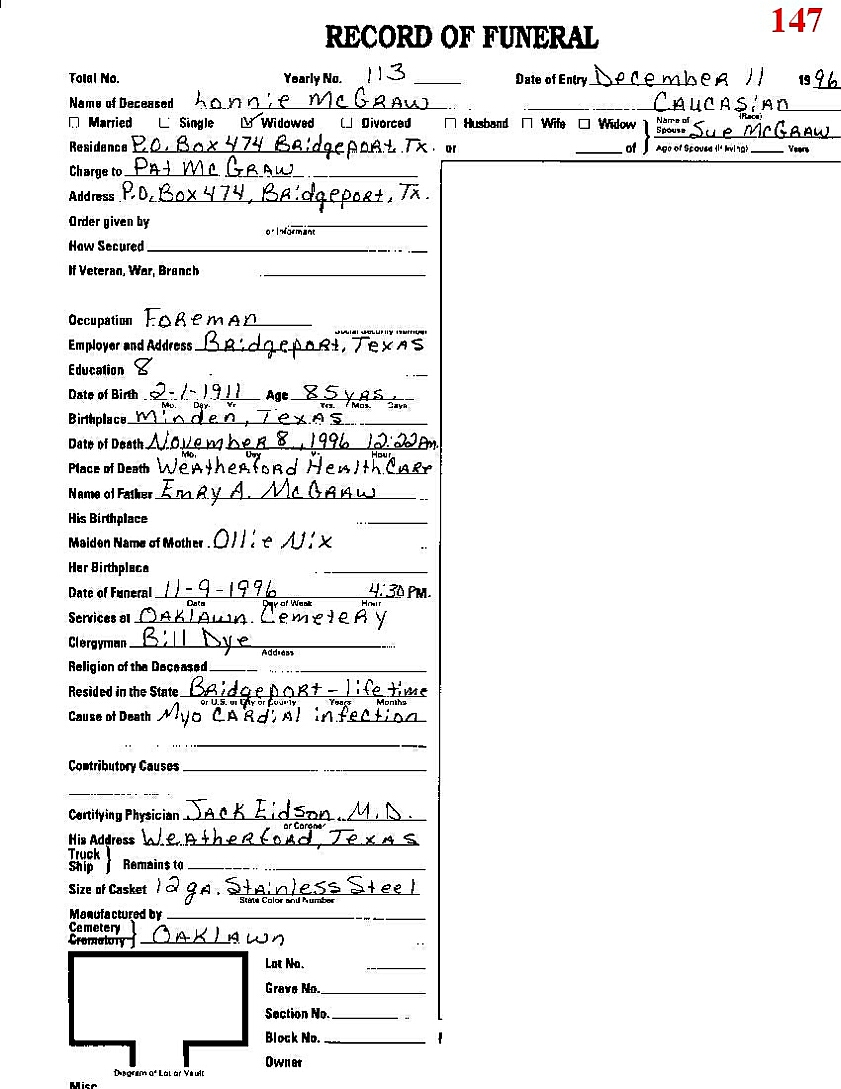 147
RECORD OF FUNERAL
Total No. Yearly No. 113 Date of Entry December 11 1996
Name of Deceased Lonnie McGraw CAUCASIAN
(Race)
☐ Married ☐ Single ☑ Widowed ☐ Divorced ☐ Husband ☐ Wife ☐ Widow } Name of Spouse Sue McGraw
Residence P.O. Box 474 Bridgeport Tx. or of } Age of Spouse (If living) Years
Charge to Pat McGraw
Address P.O. Box 474, Bridgeport, Tx.
Order given by
or Informant
How Secured
If Veteran, War, Branch
Occupation Foreman
Social Security Number
Employer and Address Bridgeport, Texas
Education 8
Date of Birth 2-1-1911 Age 85 yrs.
Mo. Day. Yr. Yrs. Mos. Days
Birthplace Minden, Texas
Date of Death November 8, 1996 12:22 PM.
Mo. Day Yr. Hour
Place of Death Weatherford HealthCare
Name of Father Emry A. McGraw
His Birthplace
Maiden Name of Mother Ollie Nix
Her Birthplace
Date of Funeral 11-9-1996 4:30 PM.
Date Day of Week Hour
Services at Oaklawn Cemetery
Clergyman Bill Dye
Address
Religion of the Deceased
Resided in the State Bridgeport - life time
or U.S. or City or County Years Months
Cause of Death Myo CARdiAl infection
Contributory Causes
Certifying Physician Jack Eidson, M.D.
or Coroner
His Address Weatherford, Texas
Truck
Ship } Remains to
Size of Casket 12 ga. Stainless Steel
State Color and Number
Manufactured by
Cemetery
Crematory } Oaklawn
Lot No.
Grave No.
Section No.
Block No.
Owner
Diagram of Lot or Vault
Misc